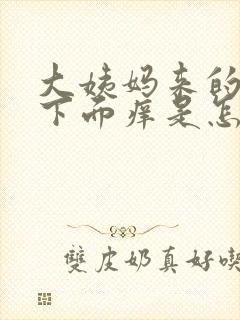 大姨妈来的
下面痒是怎
雙皮奶真好喫